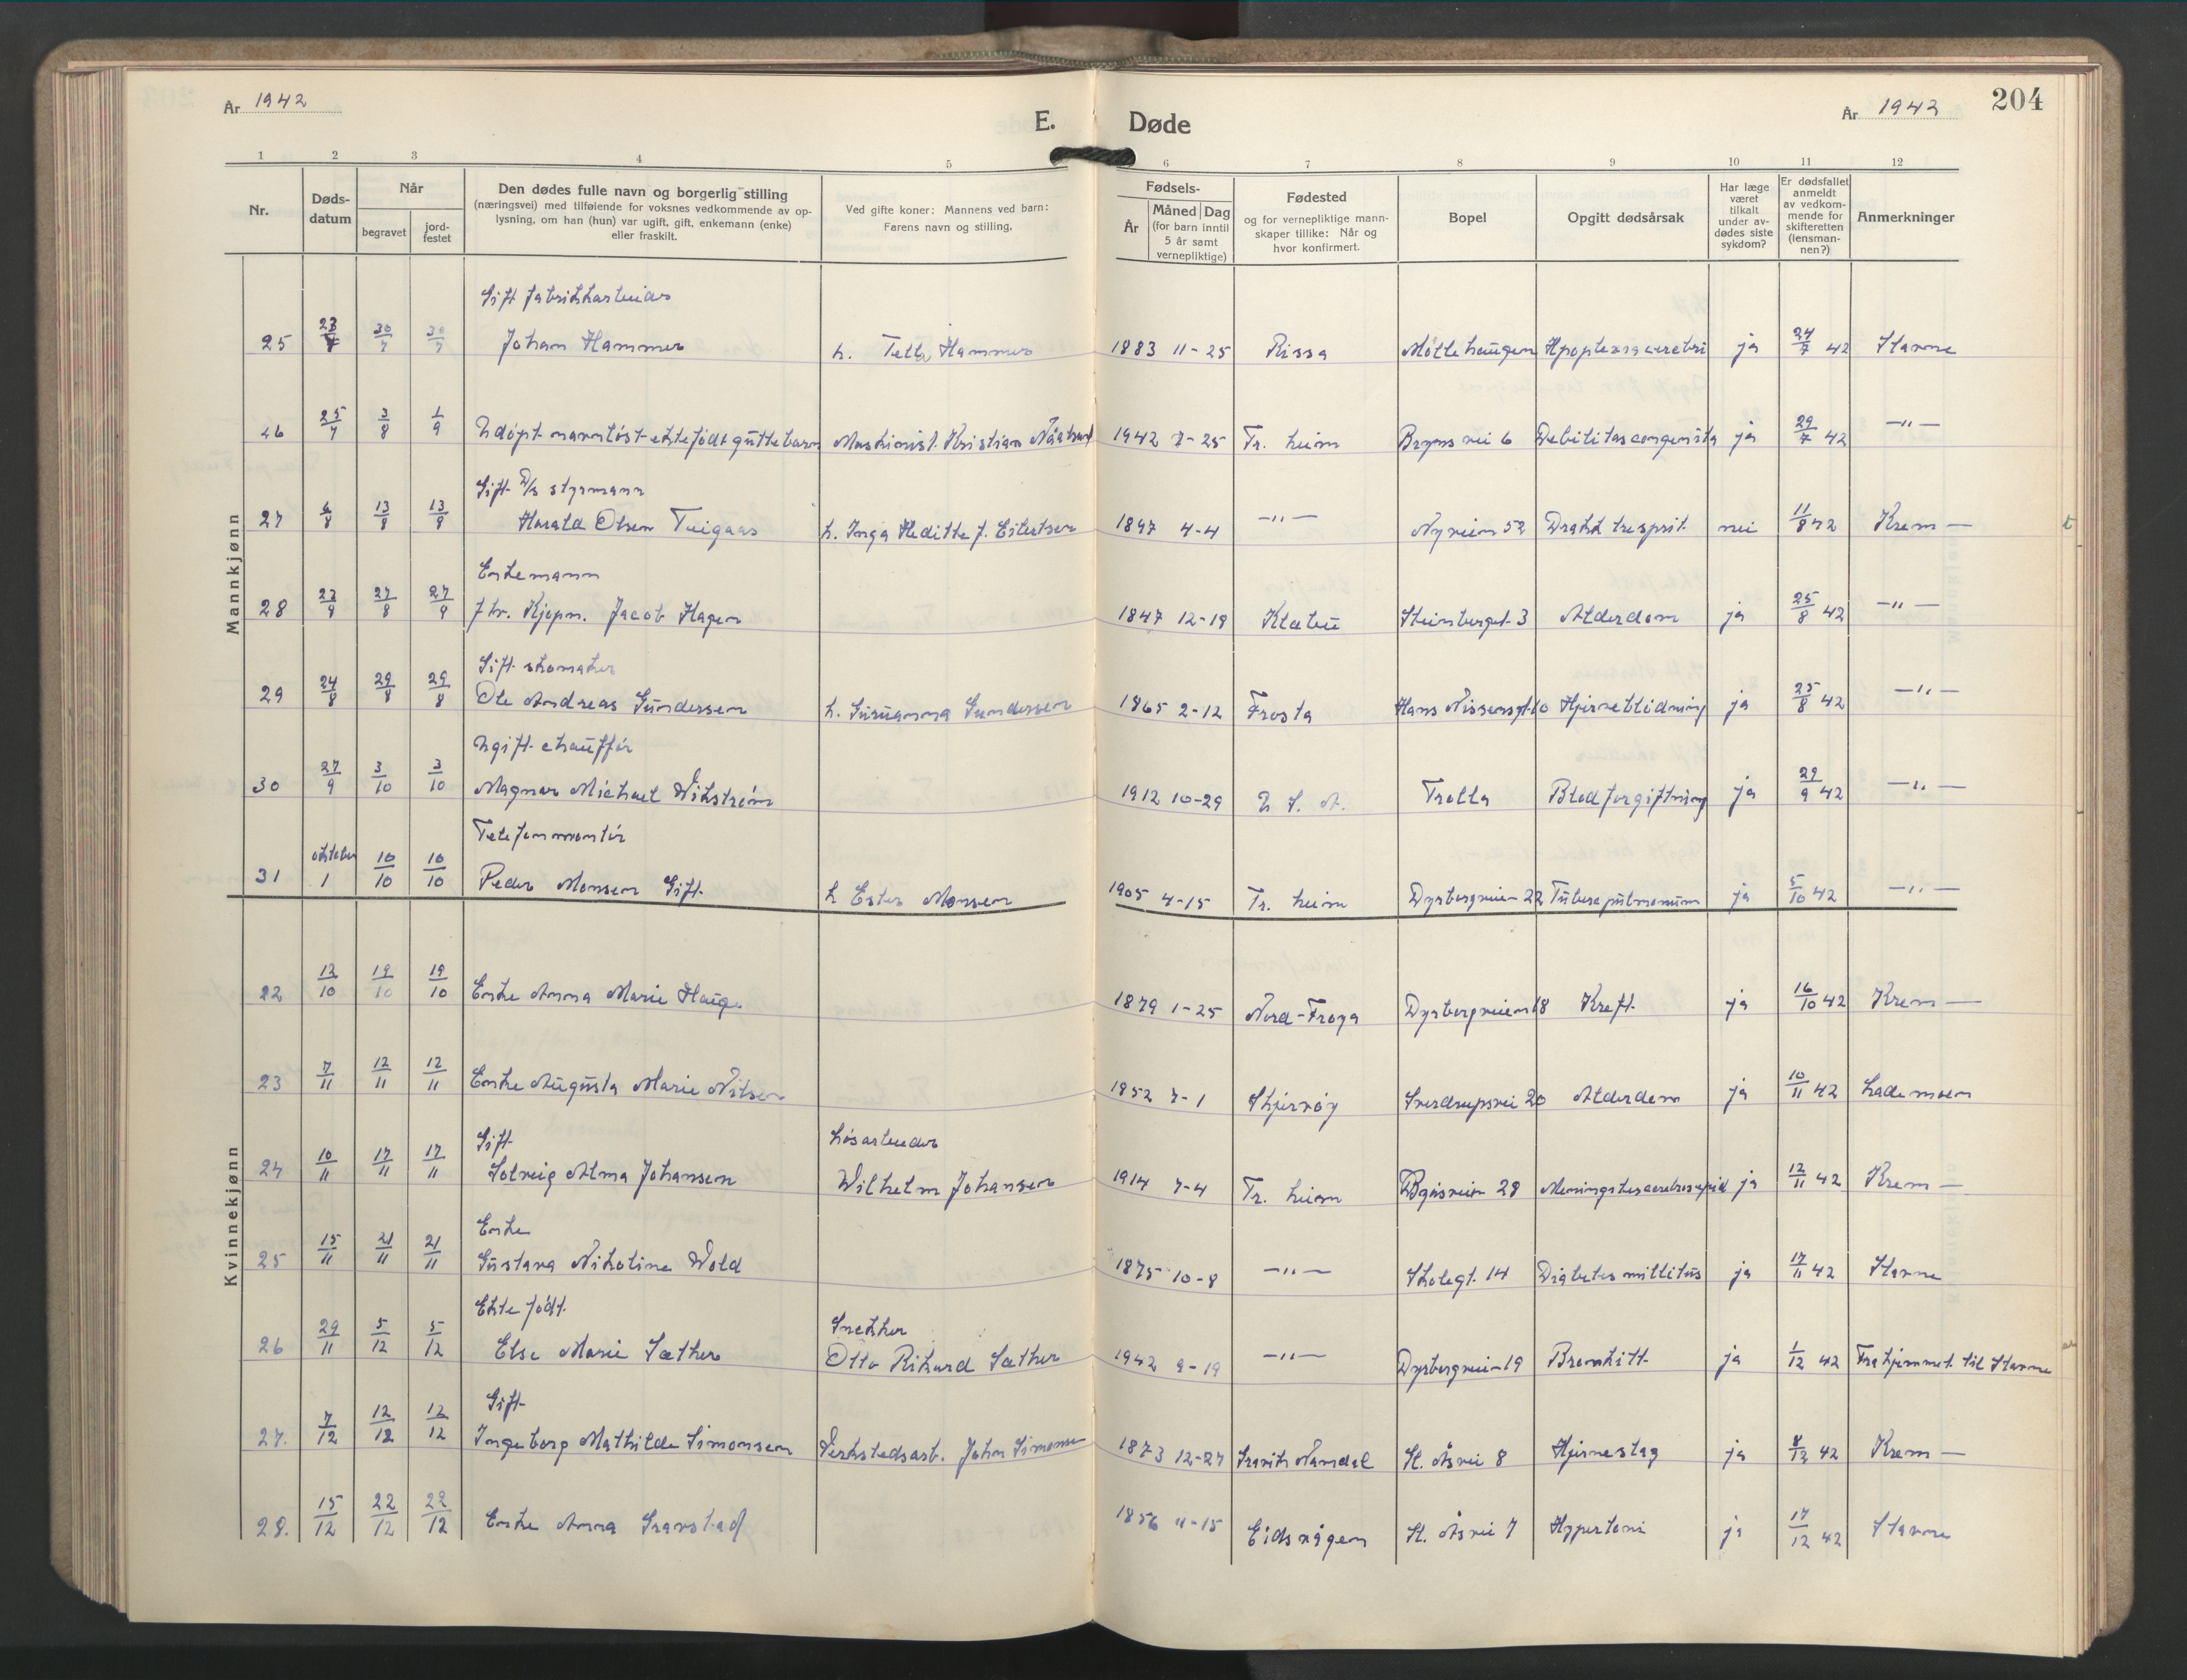 År 1942
E. Døde
År 1942
204
1 2 3 4 5 6 7 8 9 10 11 12
Nr.
Døds-
datum
Når
begravet
jord-
festet
Den dødes fulle navn og borgerlig stilling
(næringsvei) med tilføiende for voksnes vedkommende av op-
lysning, om han (hun) var ugift, gift, enkemann (enke)
eller fraskilt.
Ved gifte koner: Mannens ved barn:
Farens navn og stilling.
Fødsels-
År
Måned Dag
(for barn inntil
5 år samt
vernepliktige)
Fødested
og for vernepliktige mann-
skaper tillike: Når og
hvor konfirmert.
Bopel
Opgitt dødsårsak
Har læge
været
tilkalt
under av-
dødes siste
sykdom?
Er dødsfallet
anmeldt
av vedkom-
mende for
skifteretten
(lensman-
nen?)
Anmerkninger
Mannkjønn
Gift fabrikkarbeider
25 23/7 30/7 30/7 Johan Hammer Hammer 1883 11-25 Rissa Møllehaugen Apoplexia cerebri ja 24/7 42 Stavne
26 25/7 3/8 1/9 Udøpt navnløst ektefødt guttebarn Maskinist. Kristian 1942 7-25 Tr. heim Bryns vei 6 Debilitas congenita ja 29/7 42 -"-
Gift D/s styrmann
27 6/8 13/8 13/8 Harald Olsen 1897 4-4 -"- Nyveien 52 Drakk tresprit. nei 11/8 42 Krem -
Enkemann
28 22/8 27/8 27/8 fhv. Kjøpm. Jacob Hagen 1847 12-19 Klæbu Steinberget 3 Alderdom ja 25/8 42 -"-
Gift skomaker
29 24/8 29/8 29/8 Ole Andreas Gundersen Gundersen 1865 2-12 Frosta Hans Nissensgt. 10 Hjerneblødning ja 25/8 42 -"-
Ugift chauffør
30 27/9 3/10 3/10 Magnar Michael Wikstrøm 1912 10-29 U. S. A. Trolla Blodforgiftning ja 29/9 42 -"-
Telefonmontør
31 oktober 1 10/10 10/10 Peder Monsen Gift. Ester Monsen 1905 4-15 Tr. heim Dyrborgveien 22 Tuberc pulmonum ja 5/10 42 -"-
Kvinnekjønn
22 12/10 19/10 19/10 Enke Anna Marie Haug. 1879 1-25 Nord-Frøya Dyrborgveien 18 Kreft. ja 16/10 42 Krem -
23 7/11 12/11 12/11 Enke Augusta Marie Nilsen 1852 7-1 Skjervøy Sverdrupsvei 20 Alderdom ja 10/11 42 Lademoen
Gift Løsarbeider
24 10/11 17/11 17/11 Solveig Alma Johansen Wilhelm Johansen 1914 7-4 Tr. heim 28 ja 12/11 42 Krem -
Enke
25 15/11 21/11 21/11 Gustava Nikoline Wold 1875 10-8 -"- Skolegt. 14 Diabetes mellitus ja 17/11 42 Stavne
Ektefødt. Snekker
26 29/11 5/12 5/12 Else Marie Sæther Otto Rikard Sæther 1942 9-19 -"- Dyrborgveien 19 Bronkitt ja 1/12 42 Fra hjemmet til Stavne
Gift
27. 7/12 12/12 12/12 Ingeborg Mathilde Simonsen Verkstedsarb. John Simonsen 1873 12-27 Namdal St. Åsvei 8 Hjerneslag ja 8/12 42 Krem -
28. 15/12 22/12 22/12 Enke Anna 1856 11-15 Eidsvågen St. Åsvei 7 Hypertoni ja 17/12 42 Stavne